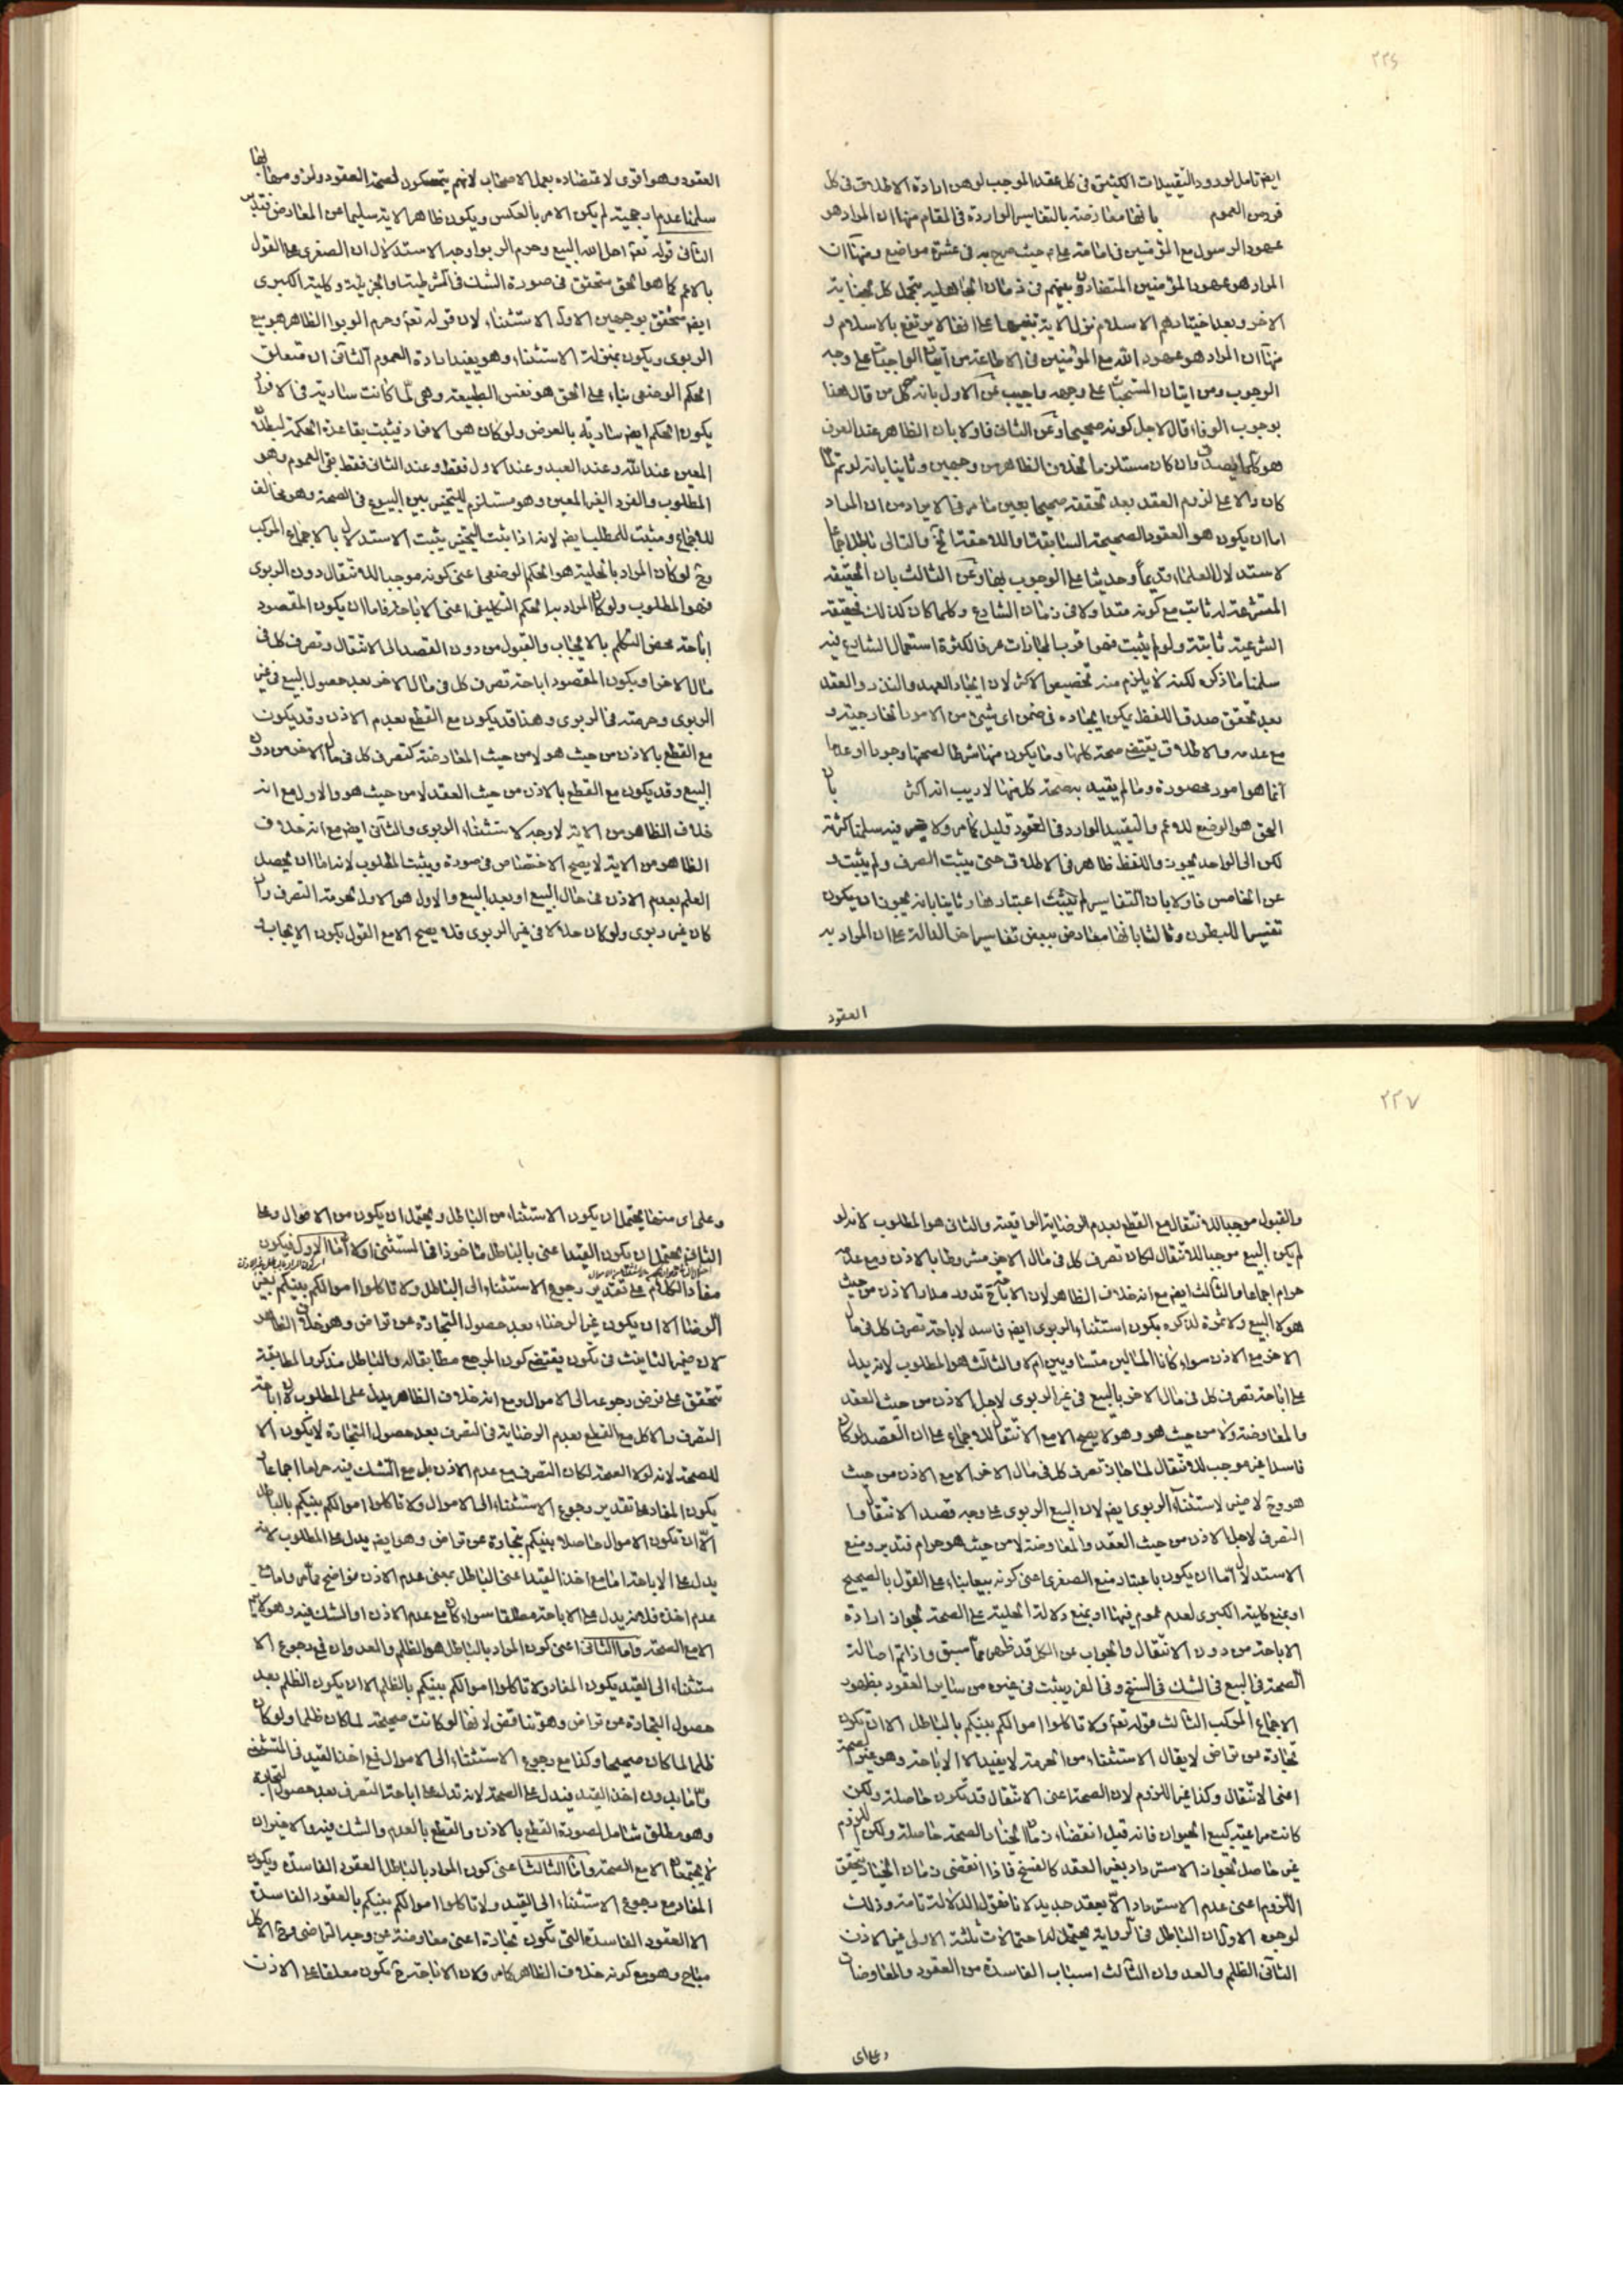 ٢٢٦
ايضا تامل لورود التقييدات الكثيرة في كل عقد الموجب لوهن ارادة الاطلاق في كل
فرد من العموم بانها معارضة بالتفاسير الواردة في المقام منها ان المراد هو
عهود الرسول مع المؤمنين في امامة على م حيث صرح به في عشرة مواضع ومنها ان
المراد هو عهود المؤمنين بينهم في زمان الجاهلية بتحمل كل جناية
الاخر وبعد اختيارهم الاسلام نزل الاية تنبيها على انها لا يرتفع بالاسلام و
منها ان المراد هو عهود الله مع المؤمنين في الاطاعة من اتيان الواجبات على وجه
الوجوب ومن اتيان المستحبات على وجهه واجيب عن الاول بانه كل من قال هنا
بوجوب الوفاء قال لاجل كونه صحيحا وعن الثاني فاولا بان الظاهر عند العرف
هو كلما يصدق وان كان مستلزما لخلاف الظاهر من وجهين وثانيا بانه لو تم لما
كان دالا على لزوم العقد بعد تحققه صحيحا بعين ما مر في الايراد من ان المراد
اما ان يكون هو العقود الصحيحة السابقة او اللاحقة الخ والتالى باطل اجماعا
لاستدلال العلماء قديما وحديثا على الوجوب بها وعن الثالث بان الحقيقة
المتشرعة له ثابت مع كونه متداولا في زمان الشارع وكلما كان كذلك فحقيقته
الشرعية ثابتة ولو لم يثبت فهو اقرب المجازات عرفا لكثرة استعمال الشارع فيه
سلمنا ما ذكره لكنه لا يلزم منه تخصيص الاكثر لان ايجاد العهد والنذر والعقد
بعد تحقق صدق اللفظ يمكن ايجاده في ضمن اى شيئ من الامور الخارجية و
مع عدمه والاطلاق يقتضي صحة كلها وما يكون منها شرطا لصحتها وجودا او عدما
انما هو امور محصورة وما لم يقيد به صحة كل منها لا ريب انه اكثر بان
الحق هو الوضع للاعم والتقييد الوارد في العقود قليل كما مر ولا ضير فيه سلمنا كثرته
لكن الى الواحد يجوز واللفظ ظاهر في الاطلاق حتى يثبت الصرف ولم يثبت و
عن الخامس فاولا بان التفاسير لم يثبت اعتبارها وثانيا بانه يجوز ان يكون
تفسيرا للبطون وثالثا بانها معارض ببعض تفاسير اخر الدالة على ان المراد به
العقود
العقود وهو اقوى لاعتضاده بعمل الاصحاب لانهم يتمسكون لصحة العقود ولزومها بها
سلمنا عدم ارجحيته لم يكن الامر بالعكس ويكون ظاهر الاية سليما عن المعارض فتدبر
الثاني قوله تعم احل الله البيع وحرم الربوا وجه الاستدلال ان الصغرى على القول
بالاعم كما هو الحق متحقق في صورة الشك في الشرطية او الجزئية وكلية الكبرى
ايضا متحقق بوجهين الاول الاستثناء لان قوله تعم وحرم الربوا الظاهر هو بيع
الربوى ويكون بمنزلة الاستثناء وهو يفيد ارادة العموم الثاني ان متعلق
الحكم الوضعى بناء على الحق هو نفس الطبيعة وهى لما كانت سارية في الافراد
يكون الحكم ايضا سارية بالعرض ولو كان هو الافراد فيثبت بقاعدة الحكمة لبطلان
المعين عند الله وعند العبد وعند الاول فقط وعند الثاني فقط بقى العموم وهو
المطلوب والفرد الغير المعين وهو مستلزم للتخيير بين البيوع في الصحة وهو مخالف
للاجماع ومثبت للمطلب ايضا لانه اذا ثبت التخيير يثبت الاستدلال بالاجماع المركب
وح لو كان المراد بالحلية هو الحكم الوضعى اعنى كونه موجبا للانتقال دون الربوى
فهو المطلوب ولو كان المراد به الحكم التكليفى اعنى الاباحة فاما ان يكون المقصود
اباحة محض التكلم بالايجاب والقبول من دون القصد الى الانتقال وتصرف كل في
مال الاخر او يكون المقصود اباحة تصرف كل في مال الاخر بعد حصول البيع في غير
الربوى وحرمته في الربوى وهذا قد يكون مع القطع بعدم الاذن وقد يكون
مع القطع بالاذن من حيث هو لا من حيث المعاوضة كتصرف كل في مال الاخر من دون
البيع وقد يكون مع القطع بالاذن من حيث العقد لا من حيث هو والاول مع انه
خلاف الظاهر من الاية لا وجه لاستثناء الربوى والثاني ايضا مع انه خلاف
الظاهر من الاية لا يصح الاختصاص في صورة ويثبت المطلوب لانه اما ان يحصل
العلم بعدم الاذن في حال البيع او بعد البيع والاول هو الاول لحرمة التصرف وان
كان غير ربوى ولو كان حلالا في غير الربوى فلا يصح الا مع القول بكون الايجاب و
٢٢٧
والقبول موجبا للانتقال مع القطع بعدم الرضاية الواقعية والثاني هو المطلوب لانه لو
لم يكن البيع موجبا للانتقال لكان تصرف كل في مال الاخر مشروطا بالاذن ومع عدمه
حرام اجماعا والثالث ايضا مع انه خلاف الظاهر لان الاباحة ح تدور مدار الاذن من حيث
هو لا البيع ولا ثمرة لذكره يكون استثناء الربوى ايضا فاسد لاباحة تصرف كل في مال
الاخر مع الاذن سواء كانا المالين متساويين ام لا والثالث هو المطلوب لانه يدل
على اباحة تصرف كل في مال الاخر بالبيع في غير الربوى لاجل الاذن من حيث العقد
والمعاوضة ولا من حيث هو وهو لا يصح الا مع الانتقال للاجماع على ان العقد لو كان
فاسدا غير موجب للانتقال لما جاز تصرف كل في مال الاخر الا مع الاذن من حيث
هو وح لا ضير لاستثناء الربوى ايضا لان البيع الربوى على وجه قصد الانتقال و
التصرف لاجل الاذن من حيث العقد والمعاوضة لا من حيث هو حرام فتدبر ومنع
الاستدلال اما ان يكون باعتبار منع الصغرى اعنى كونه بيعا بناء على القول بالصحيح
او بمنع كلية الكبرى لعدم عموم فيها او بمنع دلالة الحلية على الصحة لجواز ارادة
الاباحة من دون الانتقال والجواب عن الكل قد ظهر مما سبق واذا تم اصالة
الصحة في البيع في الشك في النسخ وفي الغرر يثبت في غيره من ساير العقود بظهور
الاجماع المركب الثالث قوله تعم ولا تاكلوا اموالكم بينكم بالباطل الا ان تكون
تجارة عن تراض لا يقال الاستثناء من الحرمة لا يفيد الا الاباحة وهو غير الصحة
اعنى الانتقال وكذا غير اللزوم لان الصحة اعنى الانتقال قد تكون حاصلة ولكن
كانت مراعية كبيع الحيوان فانه قبل انقضاء زمان الخيار الصحة حاصلة ولكن اللزوم
غير حاصل لجواز الاسترداد بغير العقد كالفسخ فاذا انقضى زمان الخيار تحقق
اللزوم اعنى عدم الاسترداد الا بعقد جديد لانا نقول الدلالة تامة وذلك
لوجوه الاول ان الباطل في الرواية يحتمل له احتمالات ثلثة الاولى غير الاذن
الثاني الظلم والعدوان الثالث اسباب الفاسدة من العقود والمعاوضات
وعلى اى
وعلى اى منها يحتمل ان يكون الاستثناء من الباطل ويحتمل ان يكون من الاموال وعلى
الثاني يحتمل ان يكون القيد اعنى بالباطل ماخوذا في المستثنى اولا اما الاول فيكون
مفاد الكلام على تقدير رجوع الاستثناء الى الباطل ولا تاكلوا اموالكم بينكم بغير
الرضا الا ان يكون غير الرضاء بعد حصول التجارة عن تراض وهو خلاف الظاهر
لان ضمير التانيث في تكون يقتضى كون المرجع مطابقا له والباطل مذكر والمطابقة
تتحقق على فرض رجوعه الى الاموال ومع انه خلاف الظاهر يدل على المطلوب لان اباحة
التصرف والاكل مع القطع بعدم الرضاية في التصرف بعد حصول التجارة لا يكون الا
للصحة لانه لولا الصحة لكان التصرف مع عدم الاذن بل مع الشك فيه حراما اجماعا و
يكون المفاد على تقدير رجوع الاستثناء الى الاموال ولا تاكلوا اموالكم بينكم بالباطل
الا ان تكون الاموال حاصلا بينكم بتجارة عن تراض وهو ايضا يدل على المطلوب لانه
يدل على الاباحة اما مع اخذ القيد اعنى الباطل بمعنى عدم الاذن فواضح كما مر واما مع
عدم اخذه فلانه يدل على الاباحة مطلقا سواء كان مع عدم الاذن او الشك فيه وهو لا يتم
الا مع الصحة واما الثاني اعنى كون المراد بالباطل هو الظلم والعدوان في رجوع الا
ستثناء الى القيد يكون المفاد ولا تاكلوا اموالكم بينكم بالظلم الا ان يكون الظلم بعد
حصول التجارة عن تراض وهو تناقض لانها لو كانت صحيحة لما كان ظلما ولو كان
ظلما لما كان صحيحا وكذا مع رجوع الاستثناء الى الاموال مع اخذ القيد في المستثنى
واما بدون اخذ القيد فيدل على الصحة لانه تدل على اباحة التصرف بعد حصول التجارة
وهو مطلق شامل لصورة القطع بالاذن والقطع بالعدم والشك فيه والاخيران
لا يجتمعان الا مع الصحة واما الثالث اعنى كون المراد بالباطل العقود الفاسدة ويكون
المفاد مع رجوع الاستثناء الى القيد ولا تاكلوا اموالكم بينكم بالعقود الفاسدة
الا العقود الفاسدة التى تكون تجارة اعنى معاوضة عن وجه التراضى فح الاكل
مباح وهو مع كونه خلاف الظاهر كما مر ولان الاباحة ح تكون معلقا على الاذن